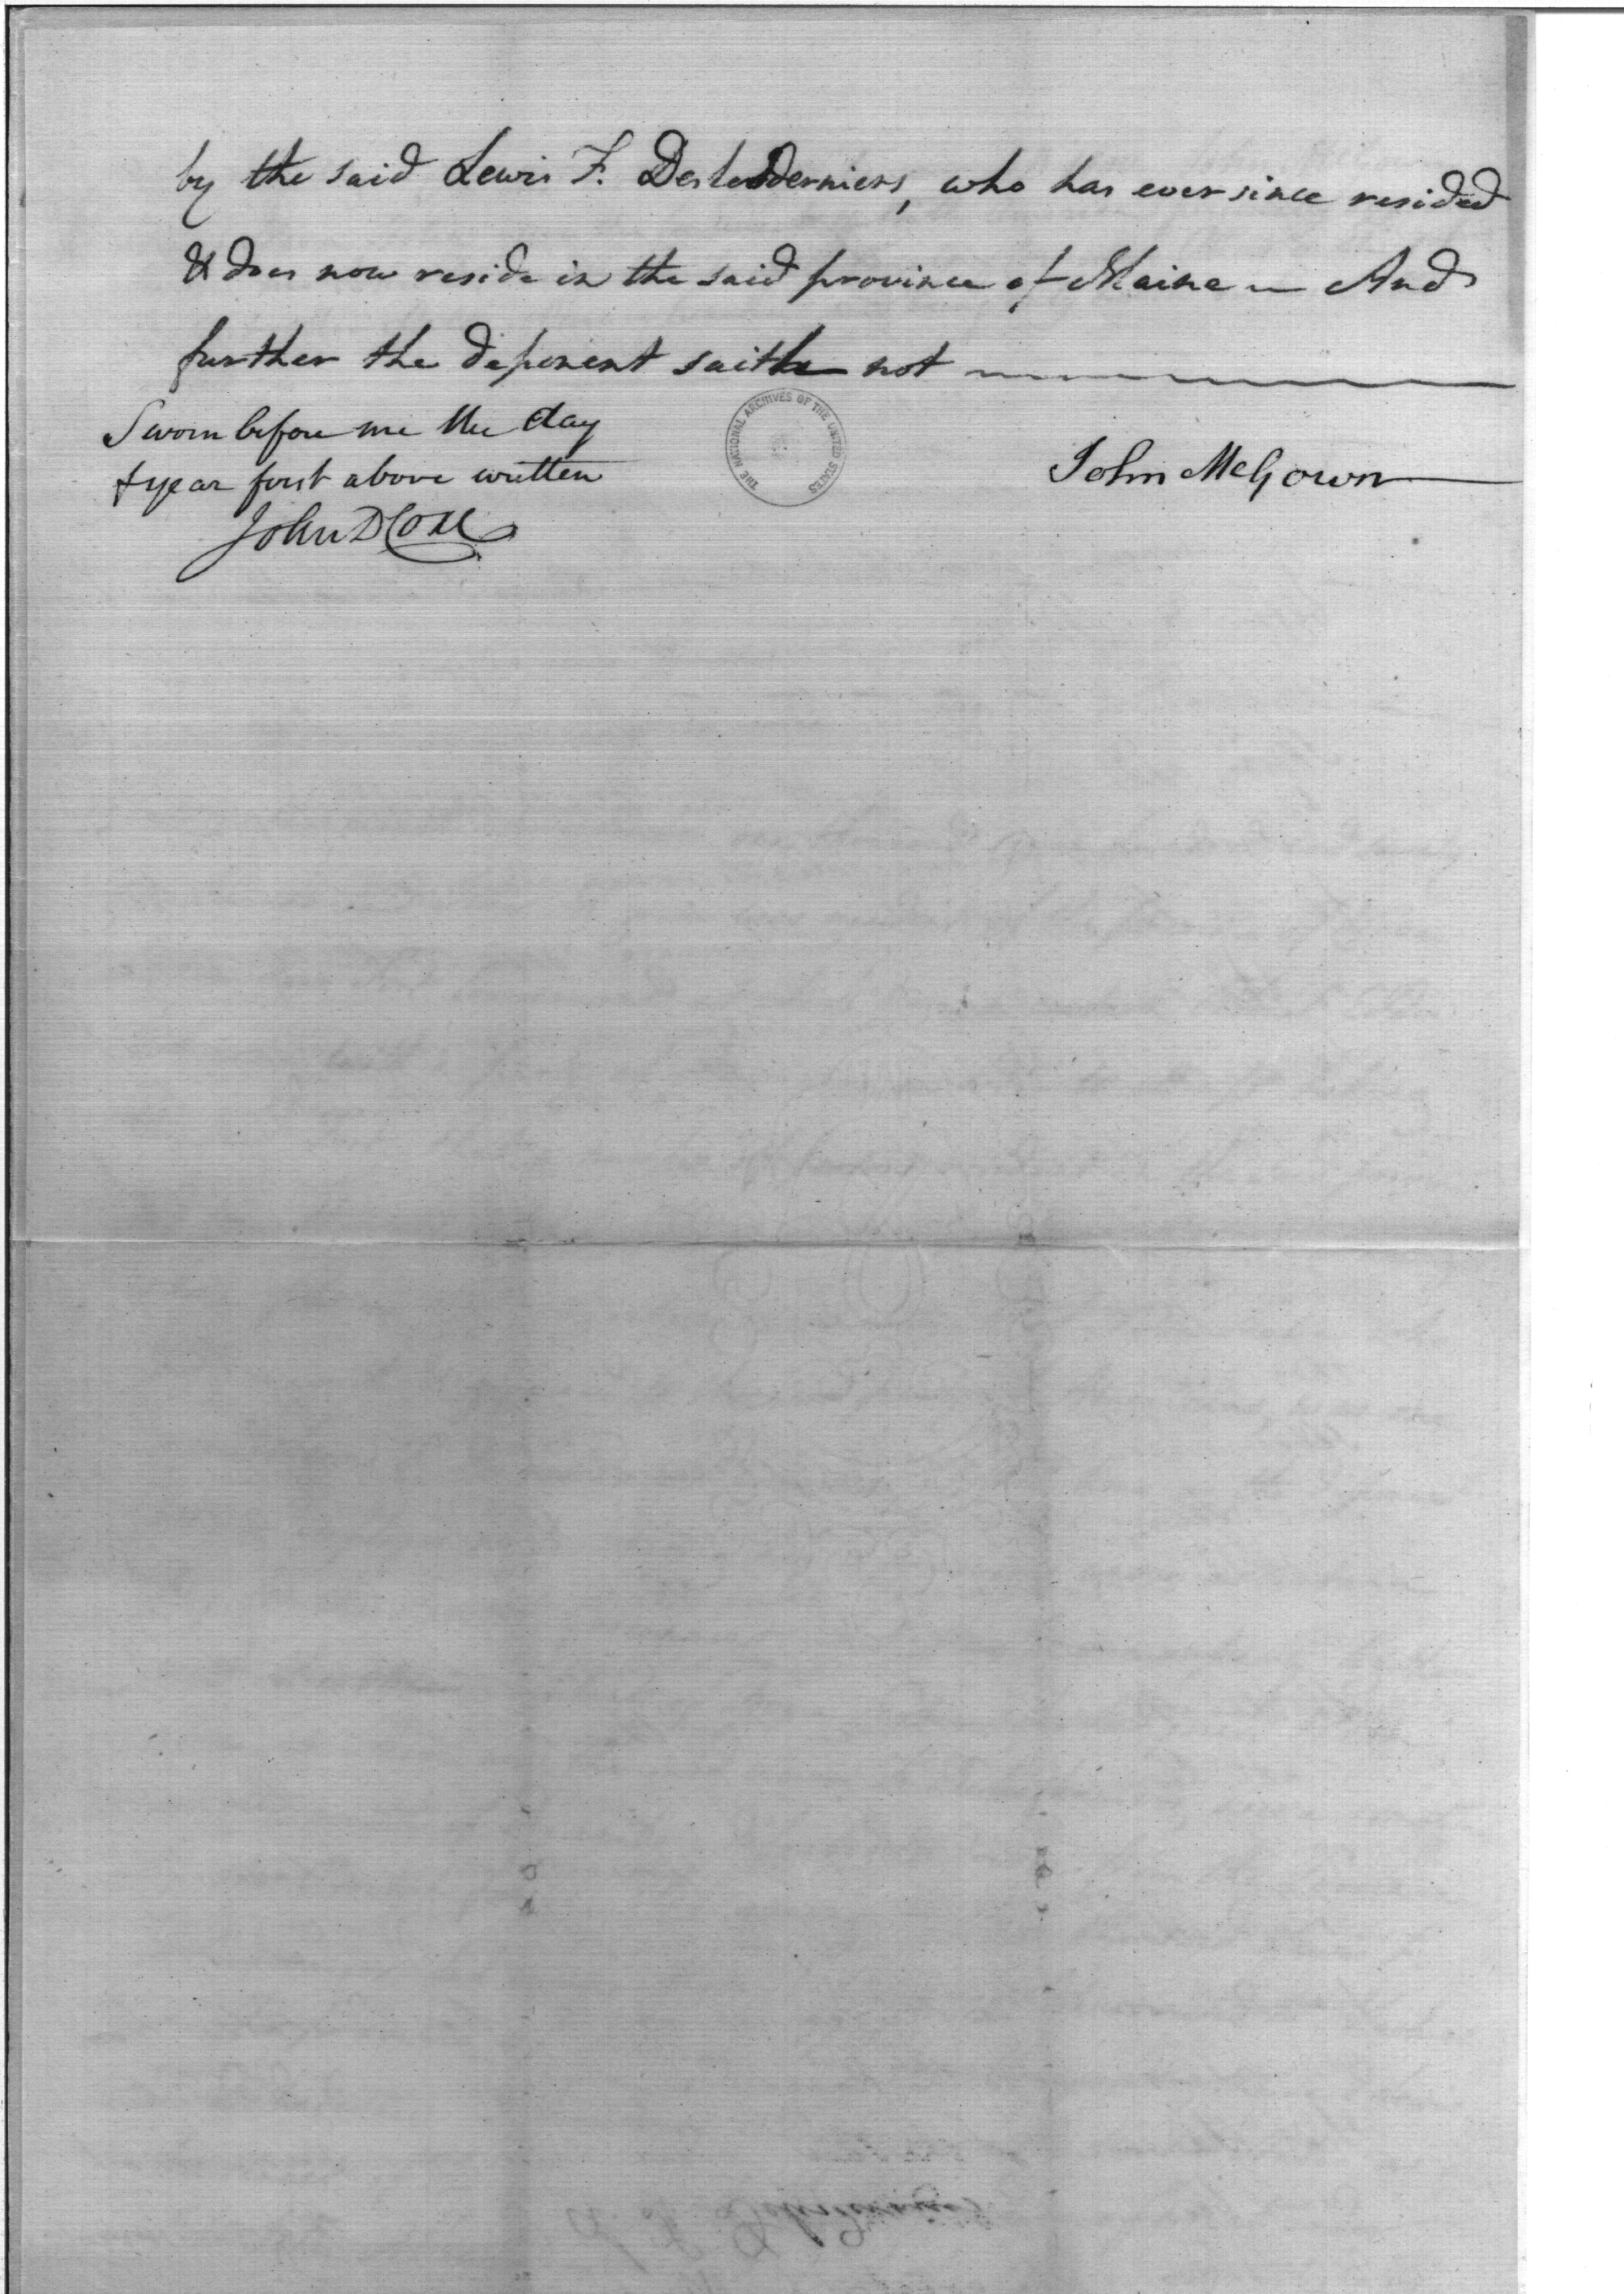 by the said Lewis F. Deslesderniers, who has ever since resided
& does now reside in the said province of Maine — And
further the deponent saith not
Sworn before me the day
& year first above written
John McGown
John D Coxe
THE NATIONAL ARCHIVES OF THE UNITED STATES